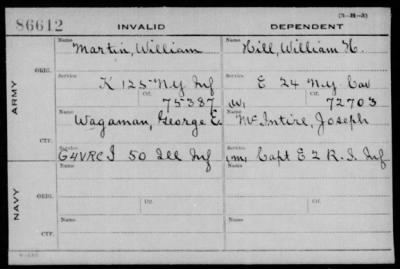 86612 INVALID DEPENDENT (3-21-3)
Name Martin, William Name Hill, William H.
ARMY ORIG. Service K 125 N.Y. Inf Service E 24 N.Y. Cav
Ctf. 75387 (W) Ctf. 72703
Name Wagaman, George E. Name McIntire, Joseph
CTF. Service G4VRC I 50 Ill Inf Service (m) Capt E 2 R.I. Inf
Name Name
NAVY ORIG. Service Ctf. Service Ctf.
Name Name
CTF.